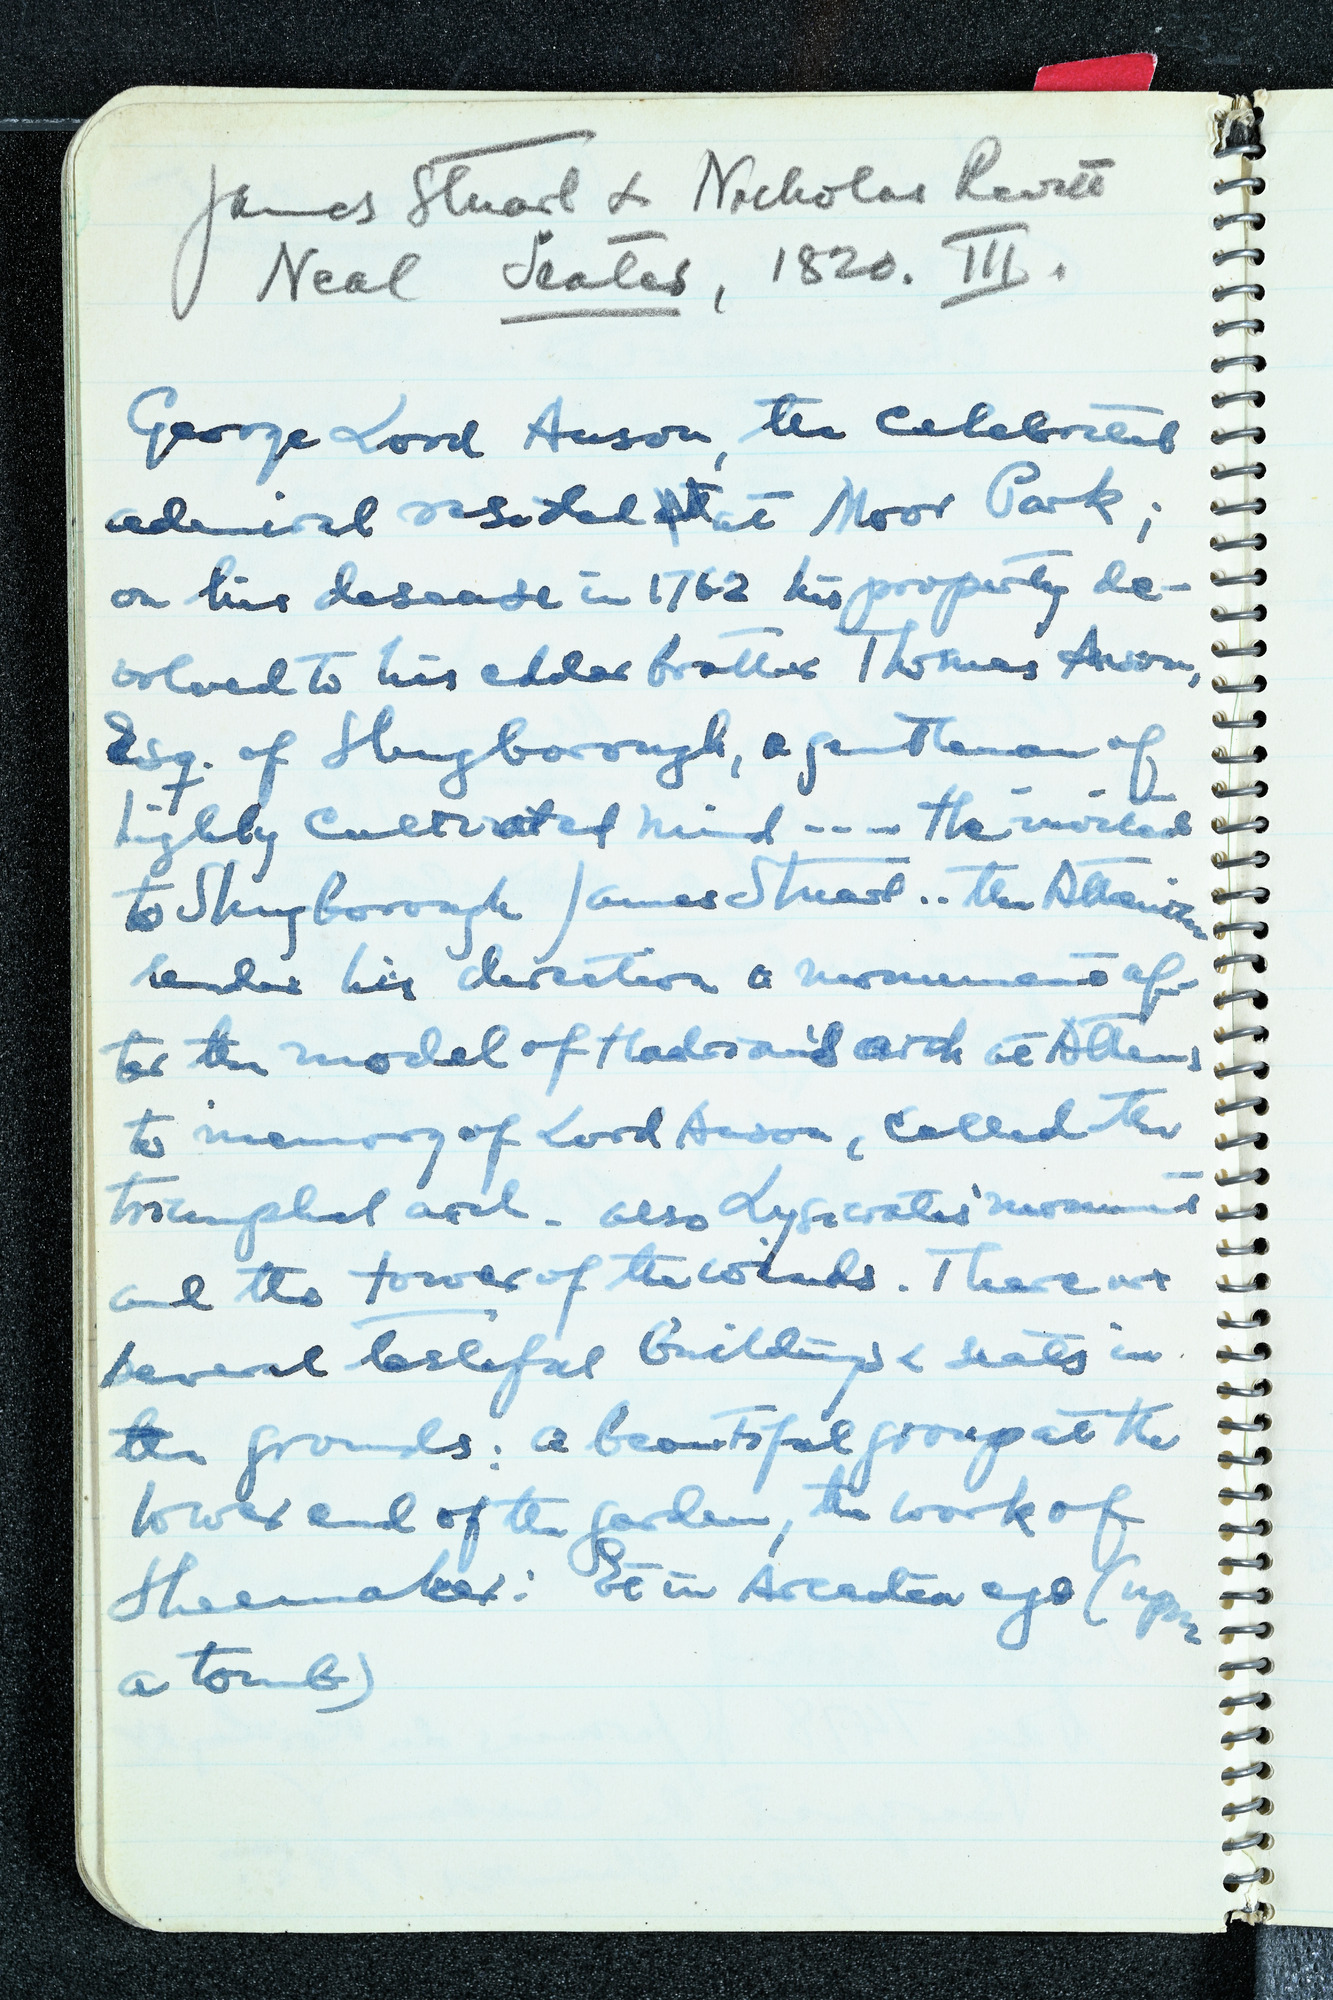 James Stuart & Nicholas Revett
Neal Seates, 1820. III.
George Lord Anson, the celebrated
admiral resided at Moor Park;
on his desease in 1762 his property de-
volved to his elder brother Thomas Anson,
Esq. of Shugborough, a gentleman of
highly cultivated mind ---- He invited
to Shugborough James Stuart .. the Athenian
under his direction a monument af-
ter the model of Hadrian's arch at Athens
to memory of Lord Anson, called the
triumphal arch - also Lysicrates' monument
and the tower of the winds. There are
several tasteful buildings & seats in
the grounds: a beautiful group at the
lower end of the garden, the work of
Sheemaker: Et in Arcadia ego (upon
a tomb)